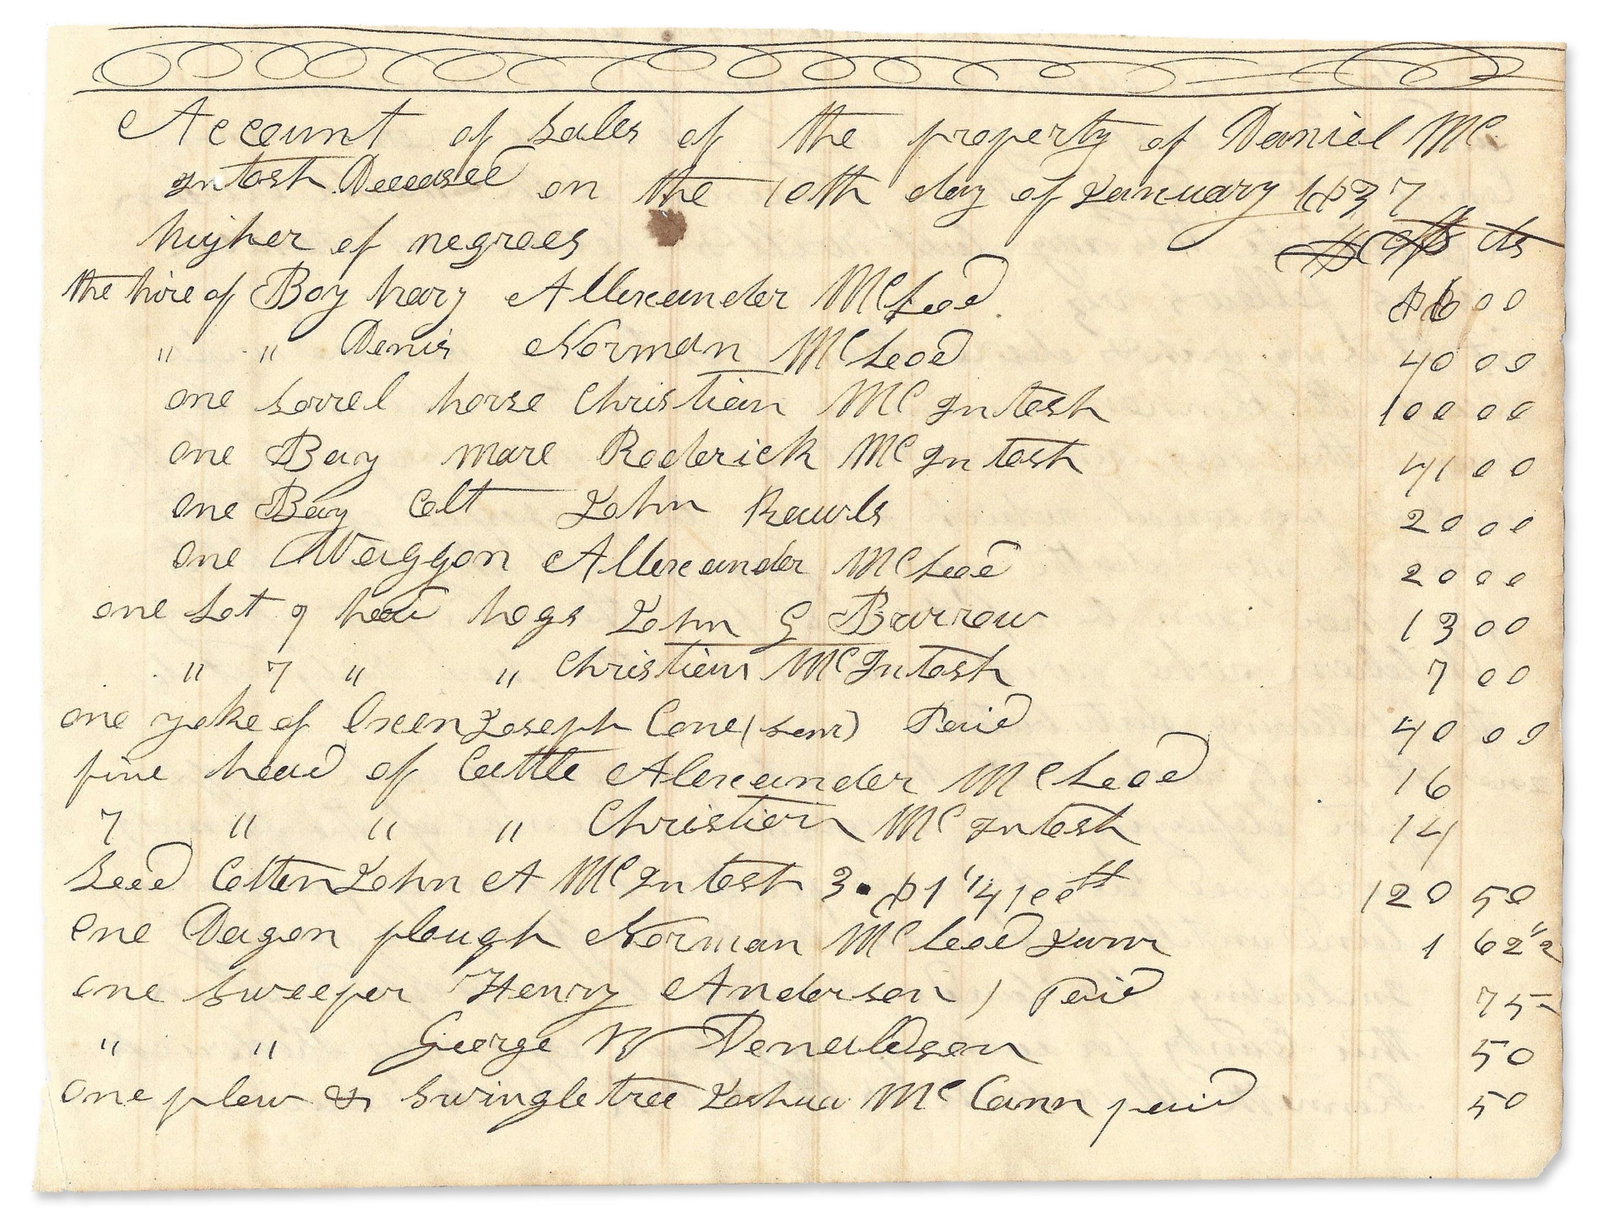 Account of Sales of the property of Daniel Mc
Intosh Deceased on the 10th day of January 1837
higher of negroes cts
the hire of Boy hary Allexander McLeod 00
" " Denis Norman McLeod 40 00
one sorrel horse Christian McIntosh 100 00
one Bay mare Roderick McIntosh 41 00
one Bay Colt John Rawls 20 00
one Waggon Allexander McLeod 20 00
one Lot 9 head hogs John G Burrow 13 00
" 7 " " Christian McIntosh 7 00
one yoke of Oxen Joseph Cone (Senr) Paid 40 00
five head of Cattle Alexander McLeod 16
7 " " " Christian McIntosh 14
Seed Cotton John A McIntosh 120 50
one Dagon plough Norman McLeod Junr 1 62 1/2
one sweeper Henry Anderson) Paid 75
" " George W Donaldson 50
one plow & swingletree Joshua McCann paid 50